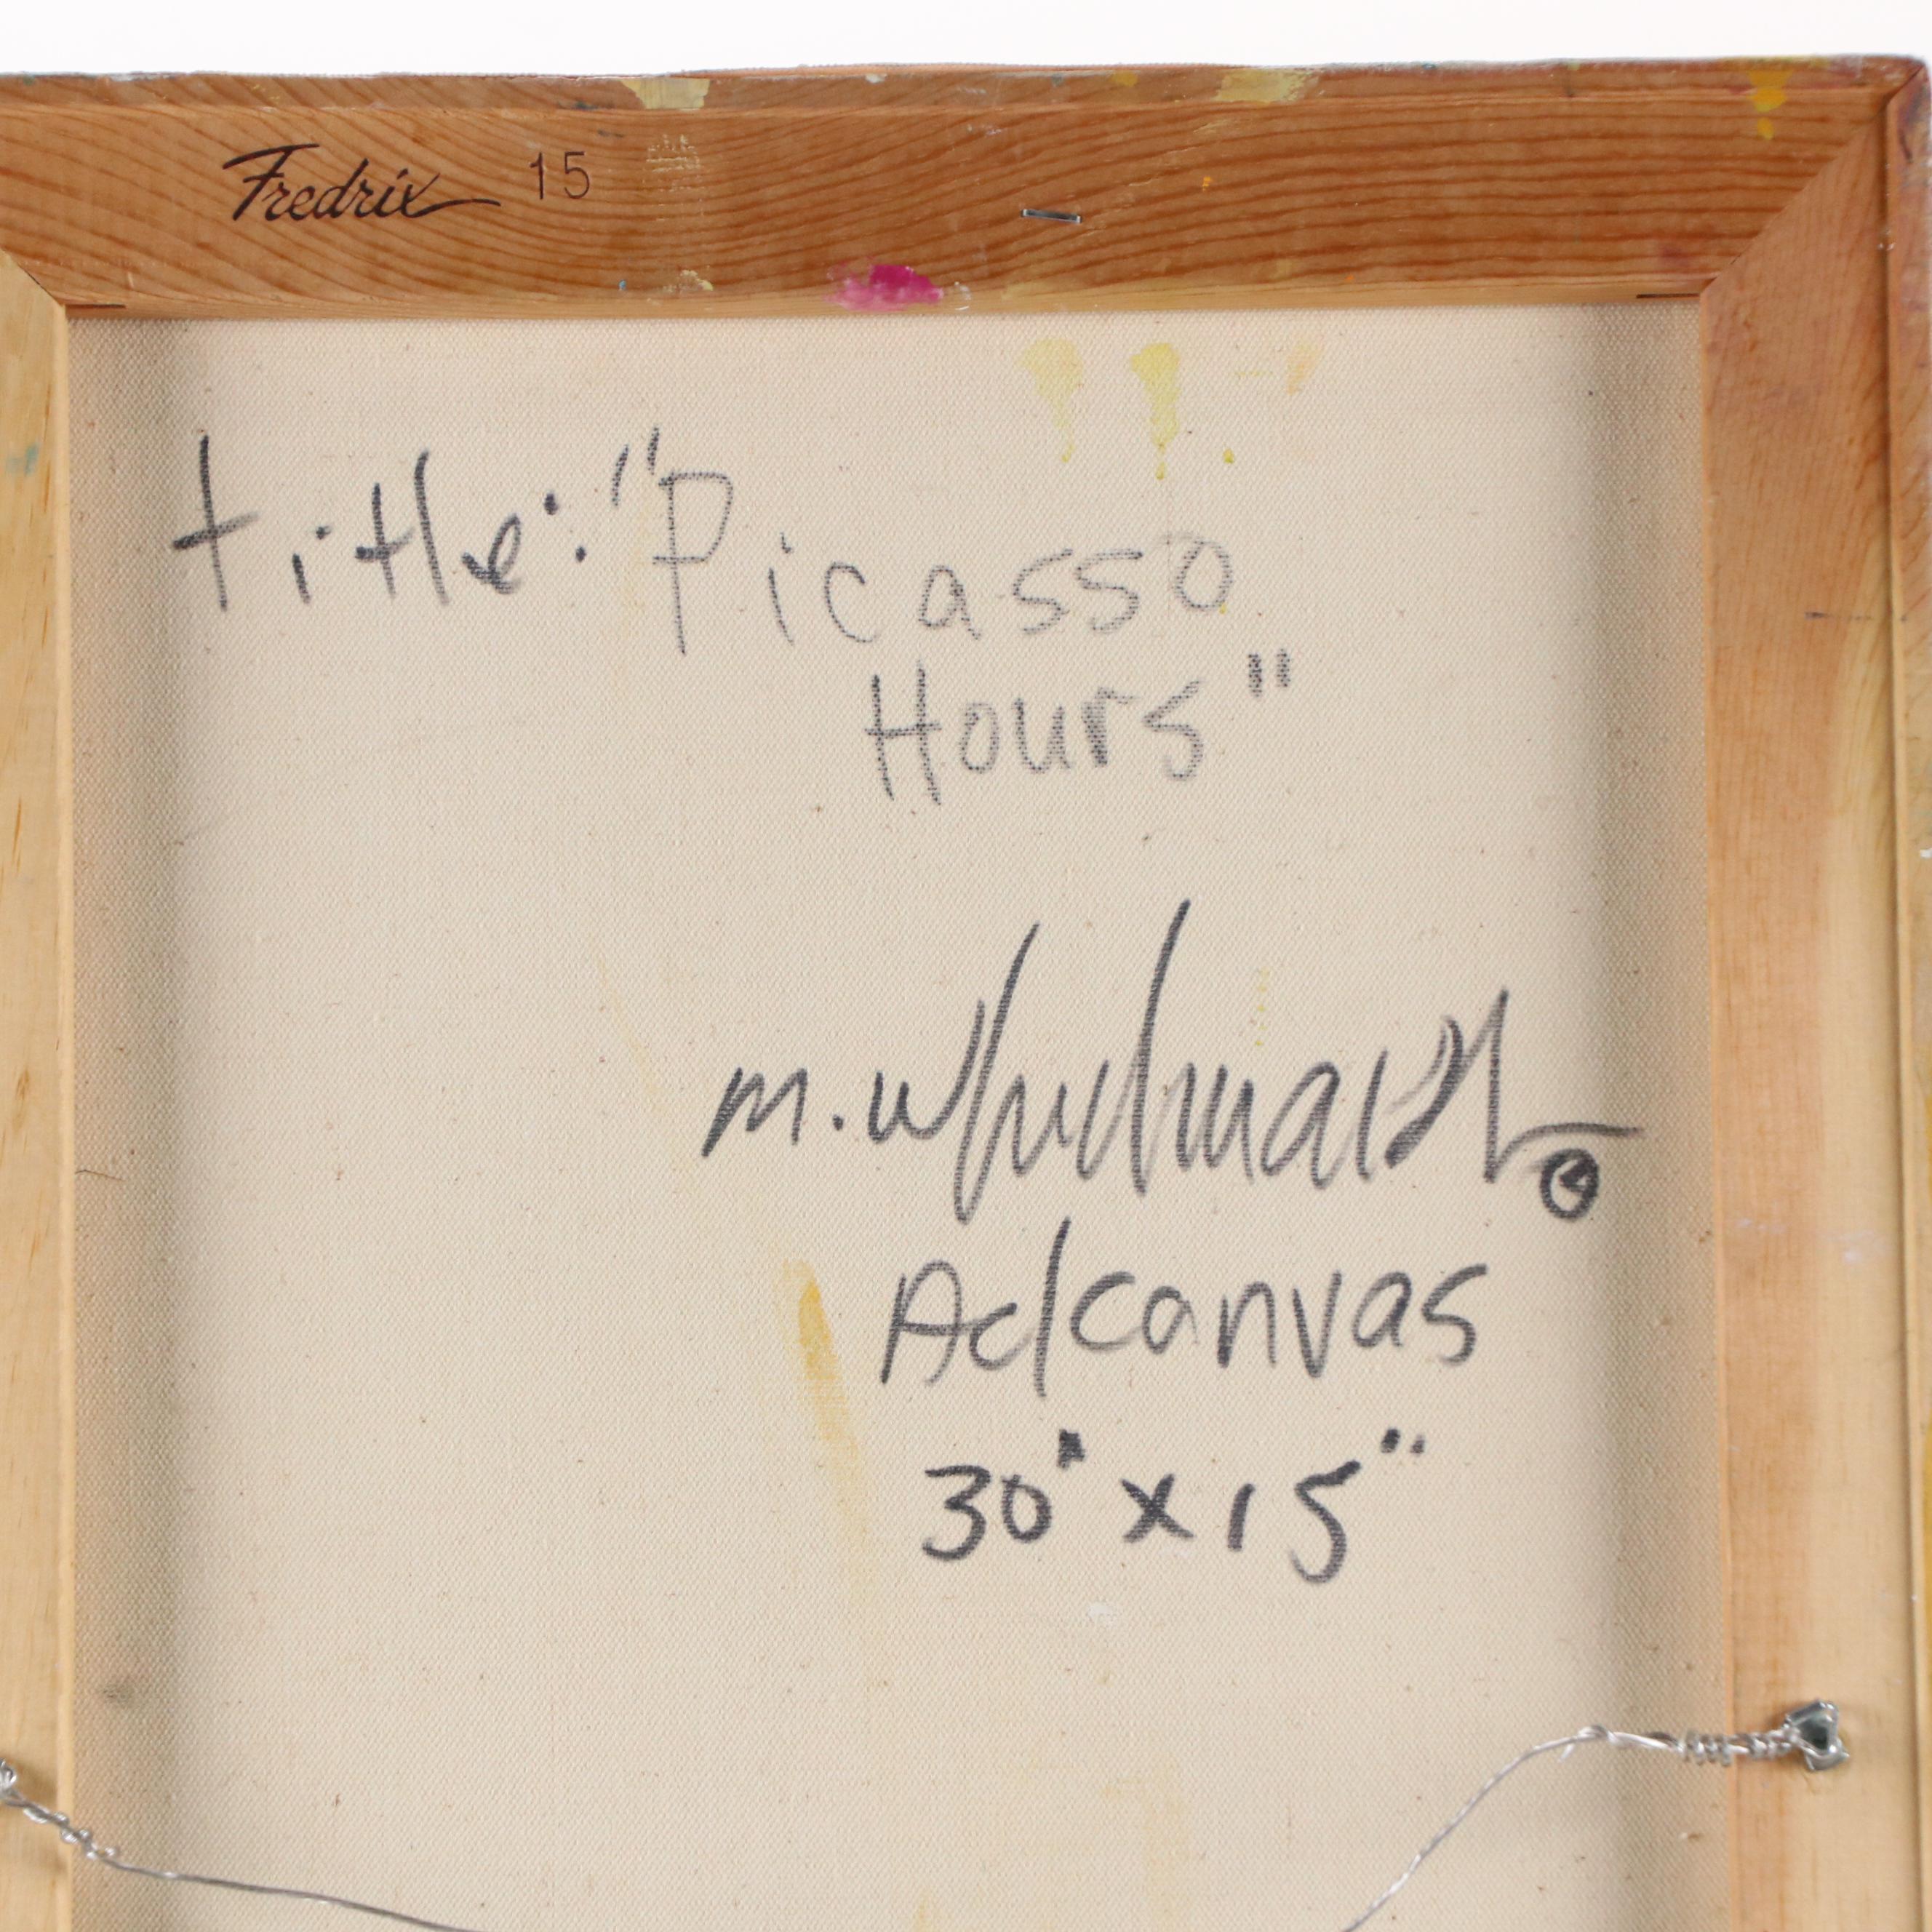 Fredrix 15
title: "Picasso
Hours"
m.
Ad canvas
30" x 15"